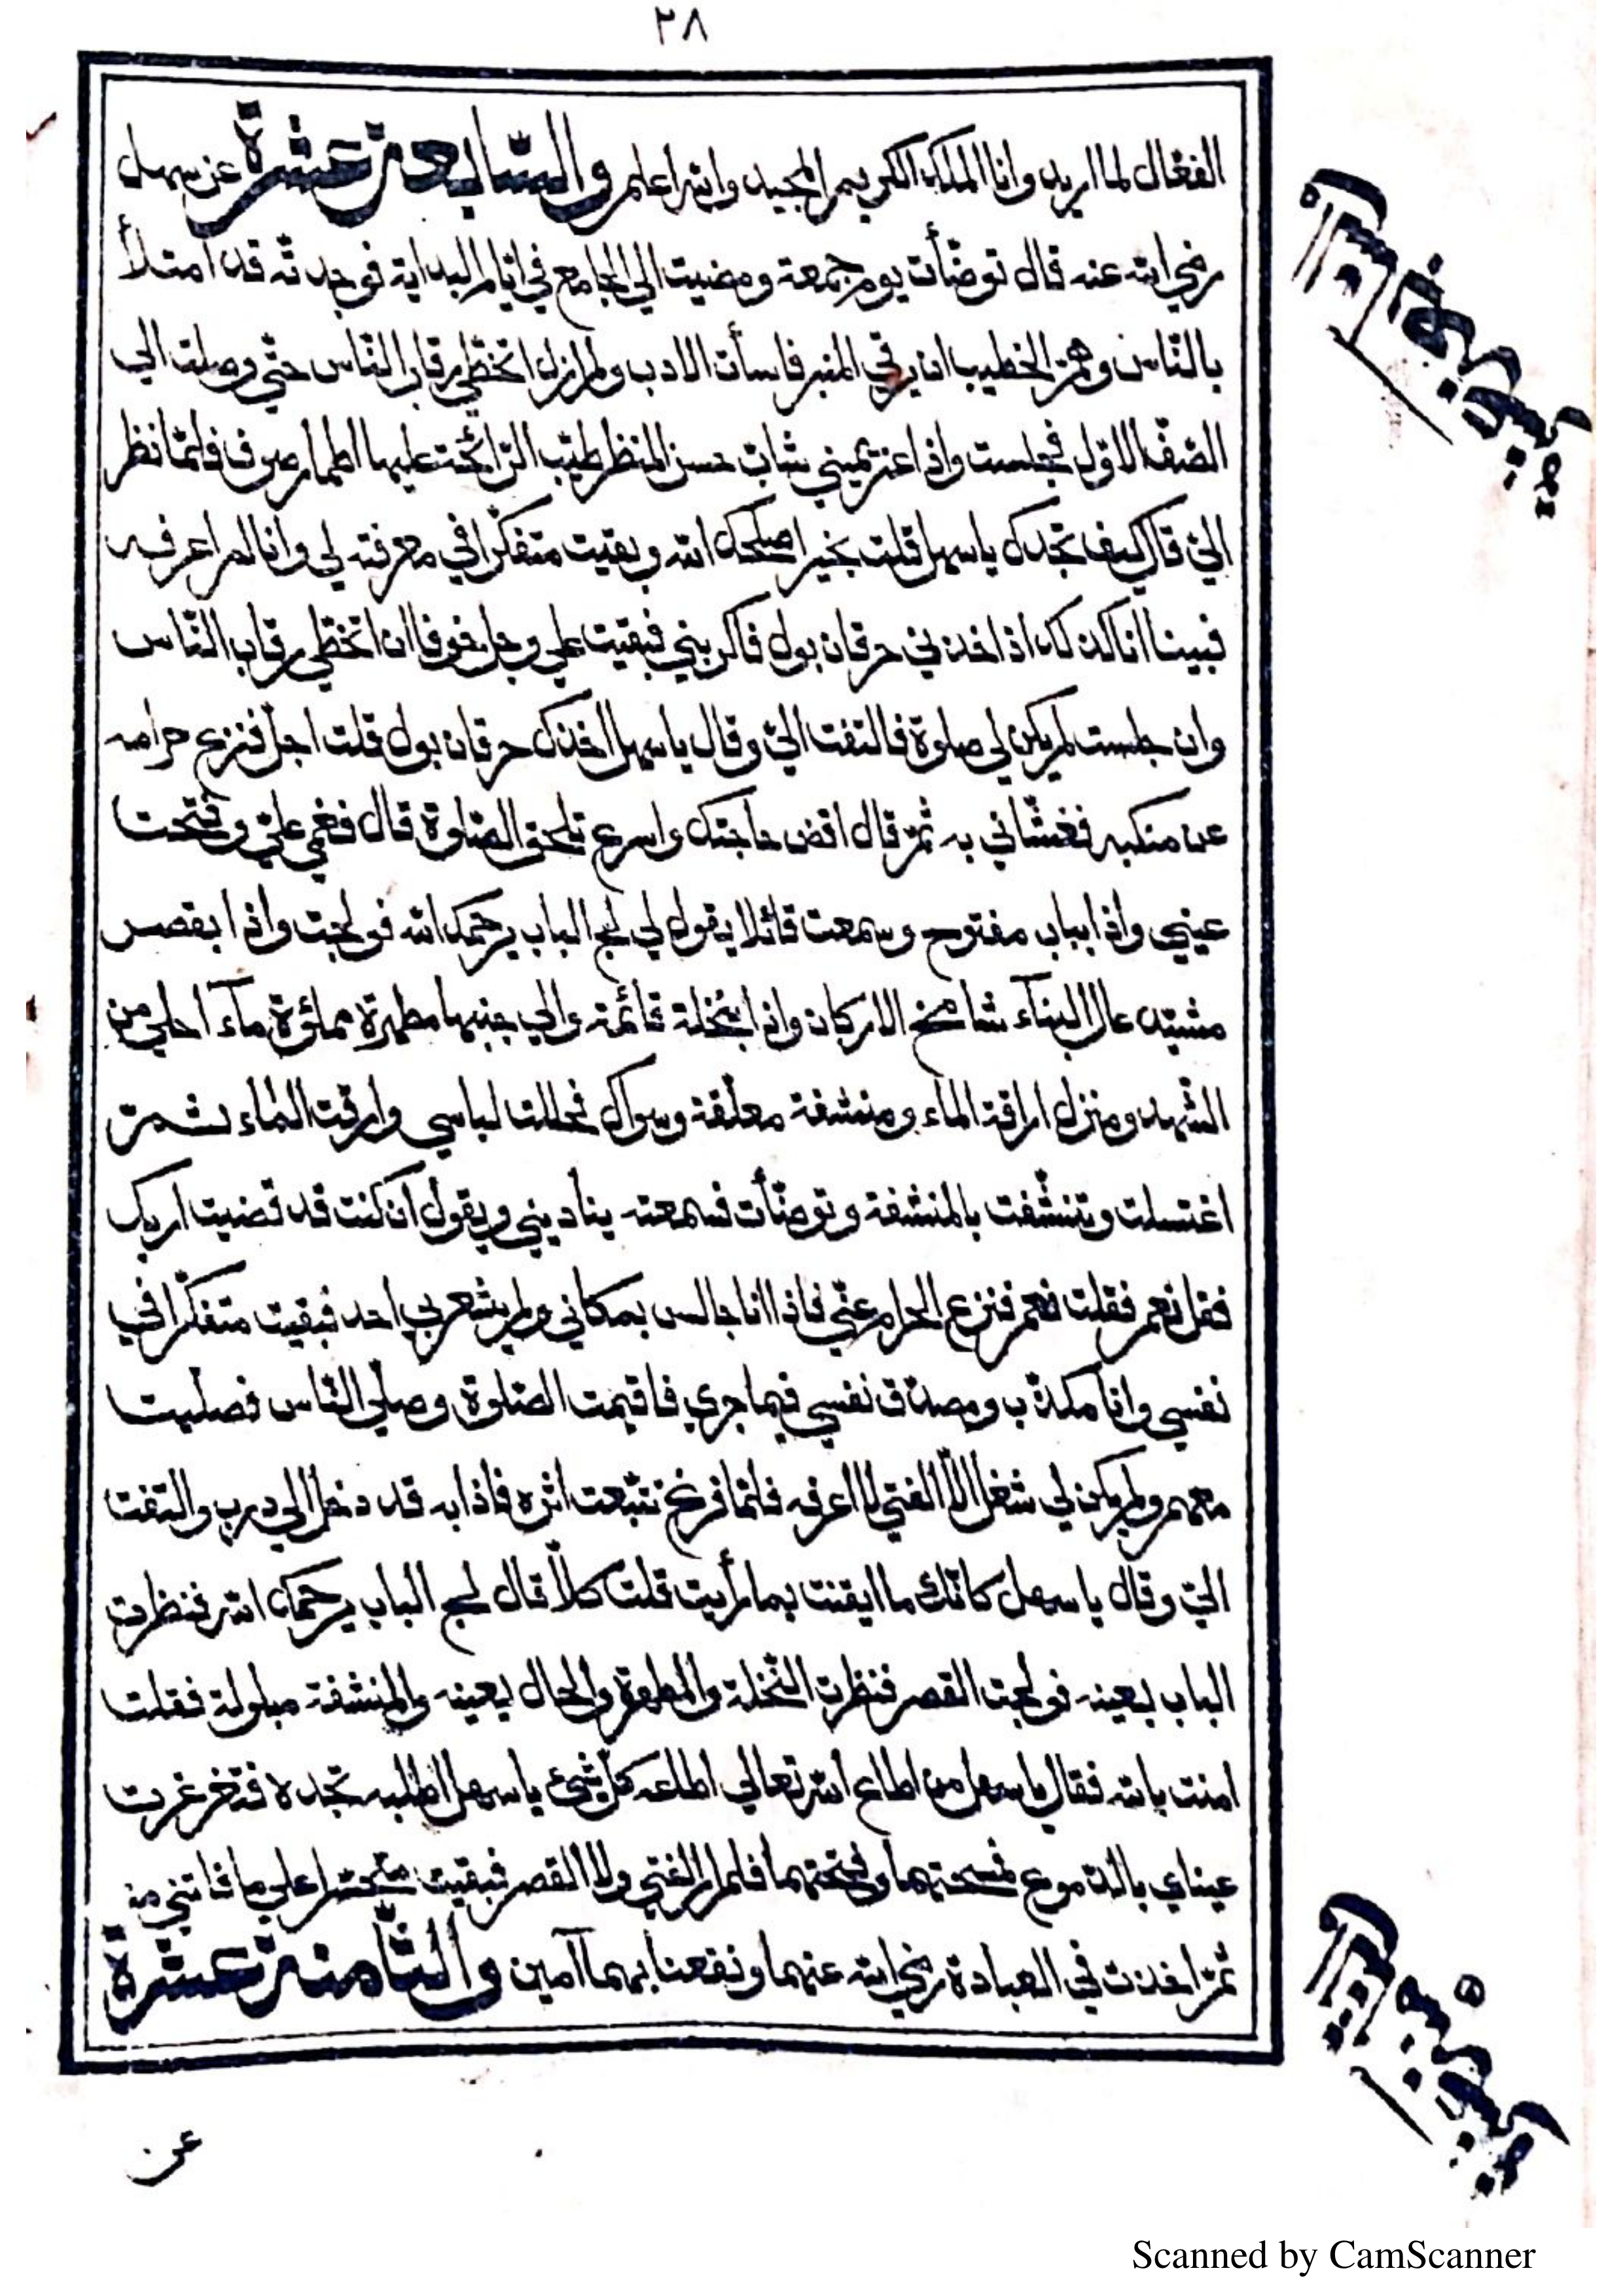 ٢٨
الفعّال لما اريد وانا الملك الكريم المجيد والله اعلم والسّابعة عشرة عن سهل
رضي الله عنه قال توضّأت يوم جمعة ومضيت الي الجامع في ايّام البداية فوجدته قد امتلأ
بالنّاس وهمّ الخطيب ان يرقي المنبر فاسأت الادب ولم ازل اتخطّي رقاب النّاس حتّي وصلت الي
الصّفّ الاوّل فجلست واذا عن يميني شابّ حسن المنظر طيّب الرّائحة عليه اطمار صوف فلمّا نظر
اليّ قال كيف تجدك يا سهل قلت بخير اصلحك الله وبقيت متفكّرا في معرفته لي وانا لم اعرفه
فبينا انا كذلك اذ اخذني حرقان بول فاكربني فبقيت علي وجل خوفا ان اتخطّي رقاب النّاس
وان جلست لم يكن لي صلوة فالتفت اليّ وقال يا سهل اخذك حرقان بول قلت اجل فنزع حرامه
عن منكبه فغشّاني به ثمّ قال اقض حاجتك واسرع تلحق الصّلوة قال فغمي عليّ وفتحت
عيني واذا بباب مفتوح وسمعت قائلا يقول لي لج الباب يرحمك الله فولجت واذا بقصر
مشيّد عال البناء شامخ الاركان واذا بنخلة قائمة والي جنبها مطهرة مملؤة ماء احلي من
الشّهد ومنزل اراقة الماء ومنشفة معلّقة وسواك فحللت لباسي وارقت الماء ثمّ
اغتسلت وتنشّفت بالمنشفة وتوضّأت فسمعته يناديني ويقول ان كنت قد قضيت اربك
فقل نعم فقلت نعم فنزع الحرام عنّي فاذا انا جالس بمكاني ولم يشعر بي احد فبقيت متفكّرا في
نفسي وانا مكذّب ومصدّق نفسي فيما جري فاقيمت الصّلوة وصلّي النّاس فصلّيت
معهم ولم يكن لي شغل الّا الفتي لا اعرفه فلمّا فرغ تتبّعت اثره فاذا به قد دخل الي درب والتفت
اليّ وقال يا سهل كانّك ما ايقنت بما رأيت قلت كلّا قال لج الباب يرحمك الله فنظرت
الباب بعينه فولجت القصر فنظرت النّخلة والمطهرة والحال بعينه والمنشفة مبلولة فقلت
امنت بالله فقال يا سهل من اطاع الله تعالي اطاعه كلّ شيء يا سهل اطلبه تجده فتغرغرت
عيناي بالدّموع فمسحتهما وفتحتهما فلم ار الفتي ولا القصر فبقيت متحسّرا علي ما فاتني منه
ثمّ اخذت في العبادة رضي الله عنهما ونفعنا بهما آمين والثّامنة عشرة
عن
Scanned by CamScanner